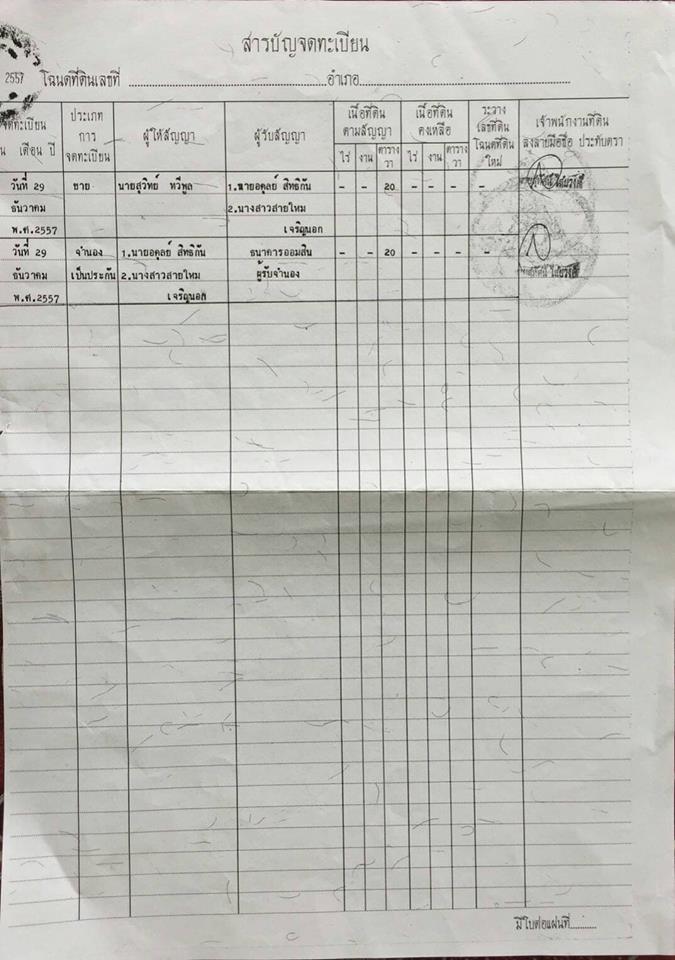 สารบัญจดทะเบียน
2557
โฉนดที่ดินเลขที่ ........ อำเภอ........
จดทะเบียน
เดือน ปี
ประเภท
การ
จดทะเบียน
ผู้ให้สัญญา
ผู้รับสัญญา
เนื้อที่ดิน
ตามสัญญา
ไร่ งาน ตาราง
วา
เนื้อที่ดิน
คงเหลือ
ไร่ งาน ตาราง
วา
ระวาง
เลขที่ดิน
โฉนดที่ดิน
ใหม่
เจ้าพนักงานที่ดิน
ลงลายมือชื่อ ประทับตรา
วันที่ 29 ขาย นายสุวิทย์ ทวีพูล 1.นายอดุลย์ สิทธิกัน - - 20 - - - -
ธันวาคม 2.นางสาวสายไหม
พ.ศ.2557 เจริญนอก
วันที่ 29 จำนอง 1.นายอดุลย์ สิทธิกัน ธนาคารออมสิน - - 20 - - - -
ธันวาคม เป็นประกัน 2.นางสาวสายไหม ผู้รับจำนอง
พ.ศ.2557 เจริญนอก
มีใบต่อแผ่นที่........